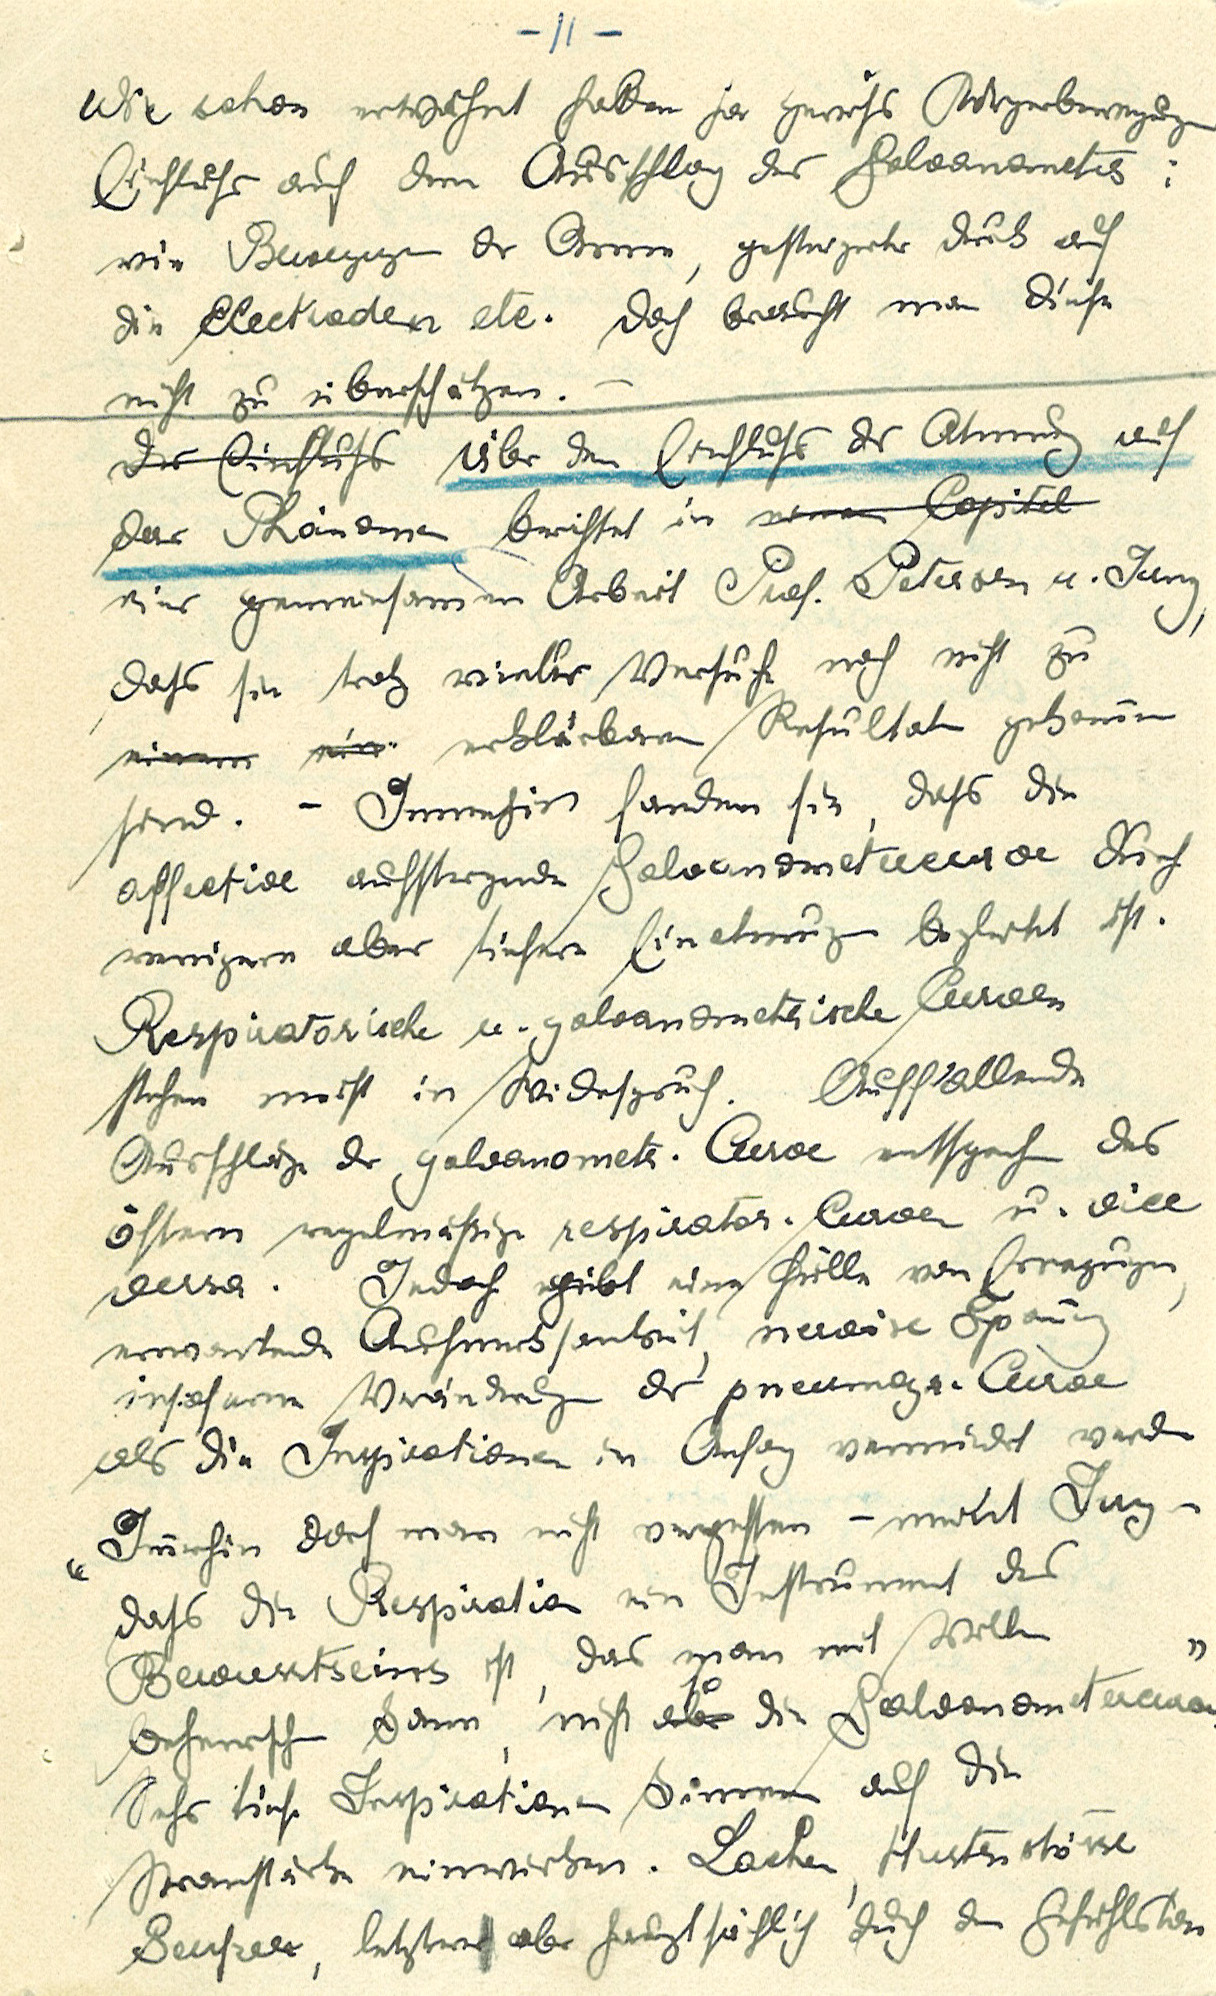 - 11 -
Wie schon erwähnt haben ja gewisse Körperbewegungen
Einfluss auf den Ausschlag des Galvanometers:
wie Bewegungen der Arme, gesteigerter Druck auf
die Electroden etc. Doch braucht man diese
nicht zu überschätzen. –
Der Einfluss Über den Einfluss der Atmung auf
das Phänomen berichtet in einem Capitel
einer gemeinsamen Arbeit Prof. Peterson u. Jung,
dass sie trotz vieler Versuche noch nicht zu
einem erklärbaren Resultate gekommen
sind. – Immerhin fanden sie, dass die
affective aufsteigende Galvanometercurve durch
wenigere aber tiefere Einatmungen begleitet ist.
Respiratorische u. galvanometrische Curven
stehen meist in Widerspruch. Auffallende
Ausschläge der galvanometr. Curve entsprechen des
öftern regelmässige respirator. Curven u. vice
versa. Jedoch gibt eine Fülle von Erregungen,
erwartende Aufmerksamkeit, nervöse Spannung
insofern Veränderungen der pneumogr. Curve
als die Inspirationen im Anfang vermindert werden
"Immerhin darf man nicht vergessen – merkt Jung –
dass die Respiration ein Instrument des
Bewusstseins ist, das man mit Willen
beherrschen kann, nicht aber so die Galvanometercurve"
Sehr tiefe Inspirationen können auf die
Stromstärke einwirken. Lachen, Hustenstösse
Seufzer, letztere aber hauptsächlich durch den Gefühlston